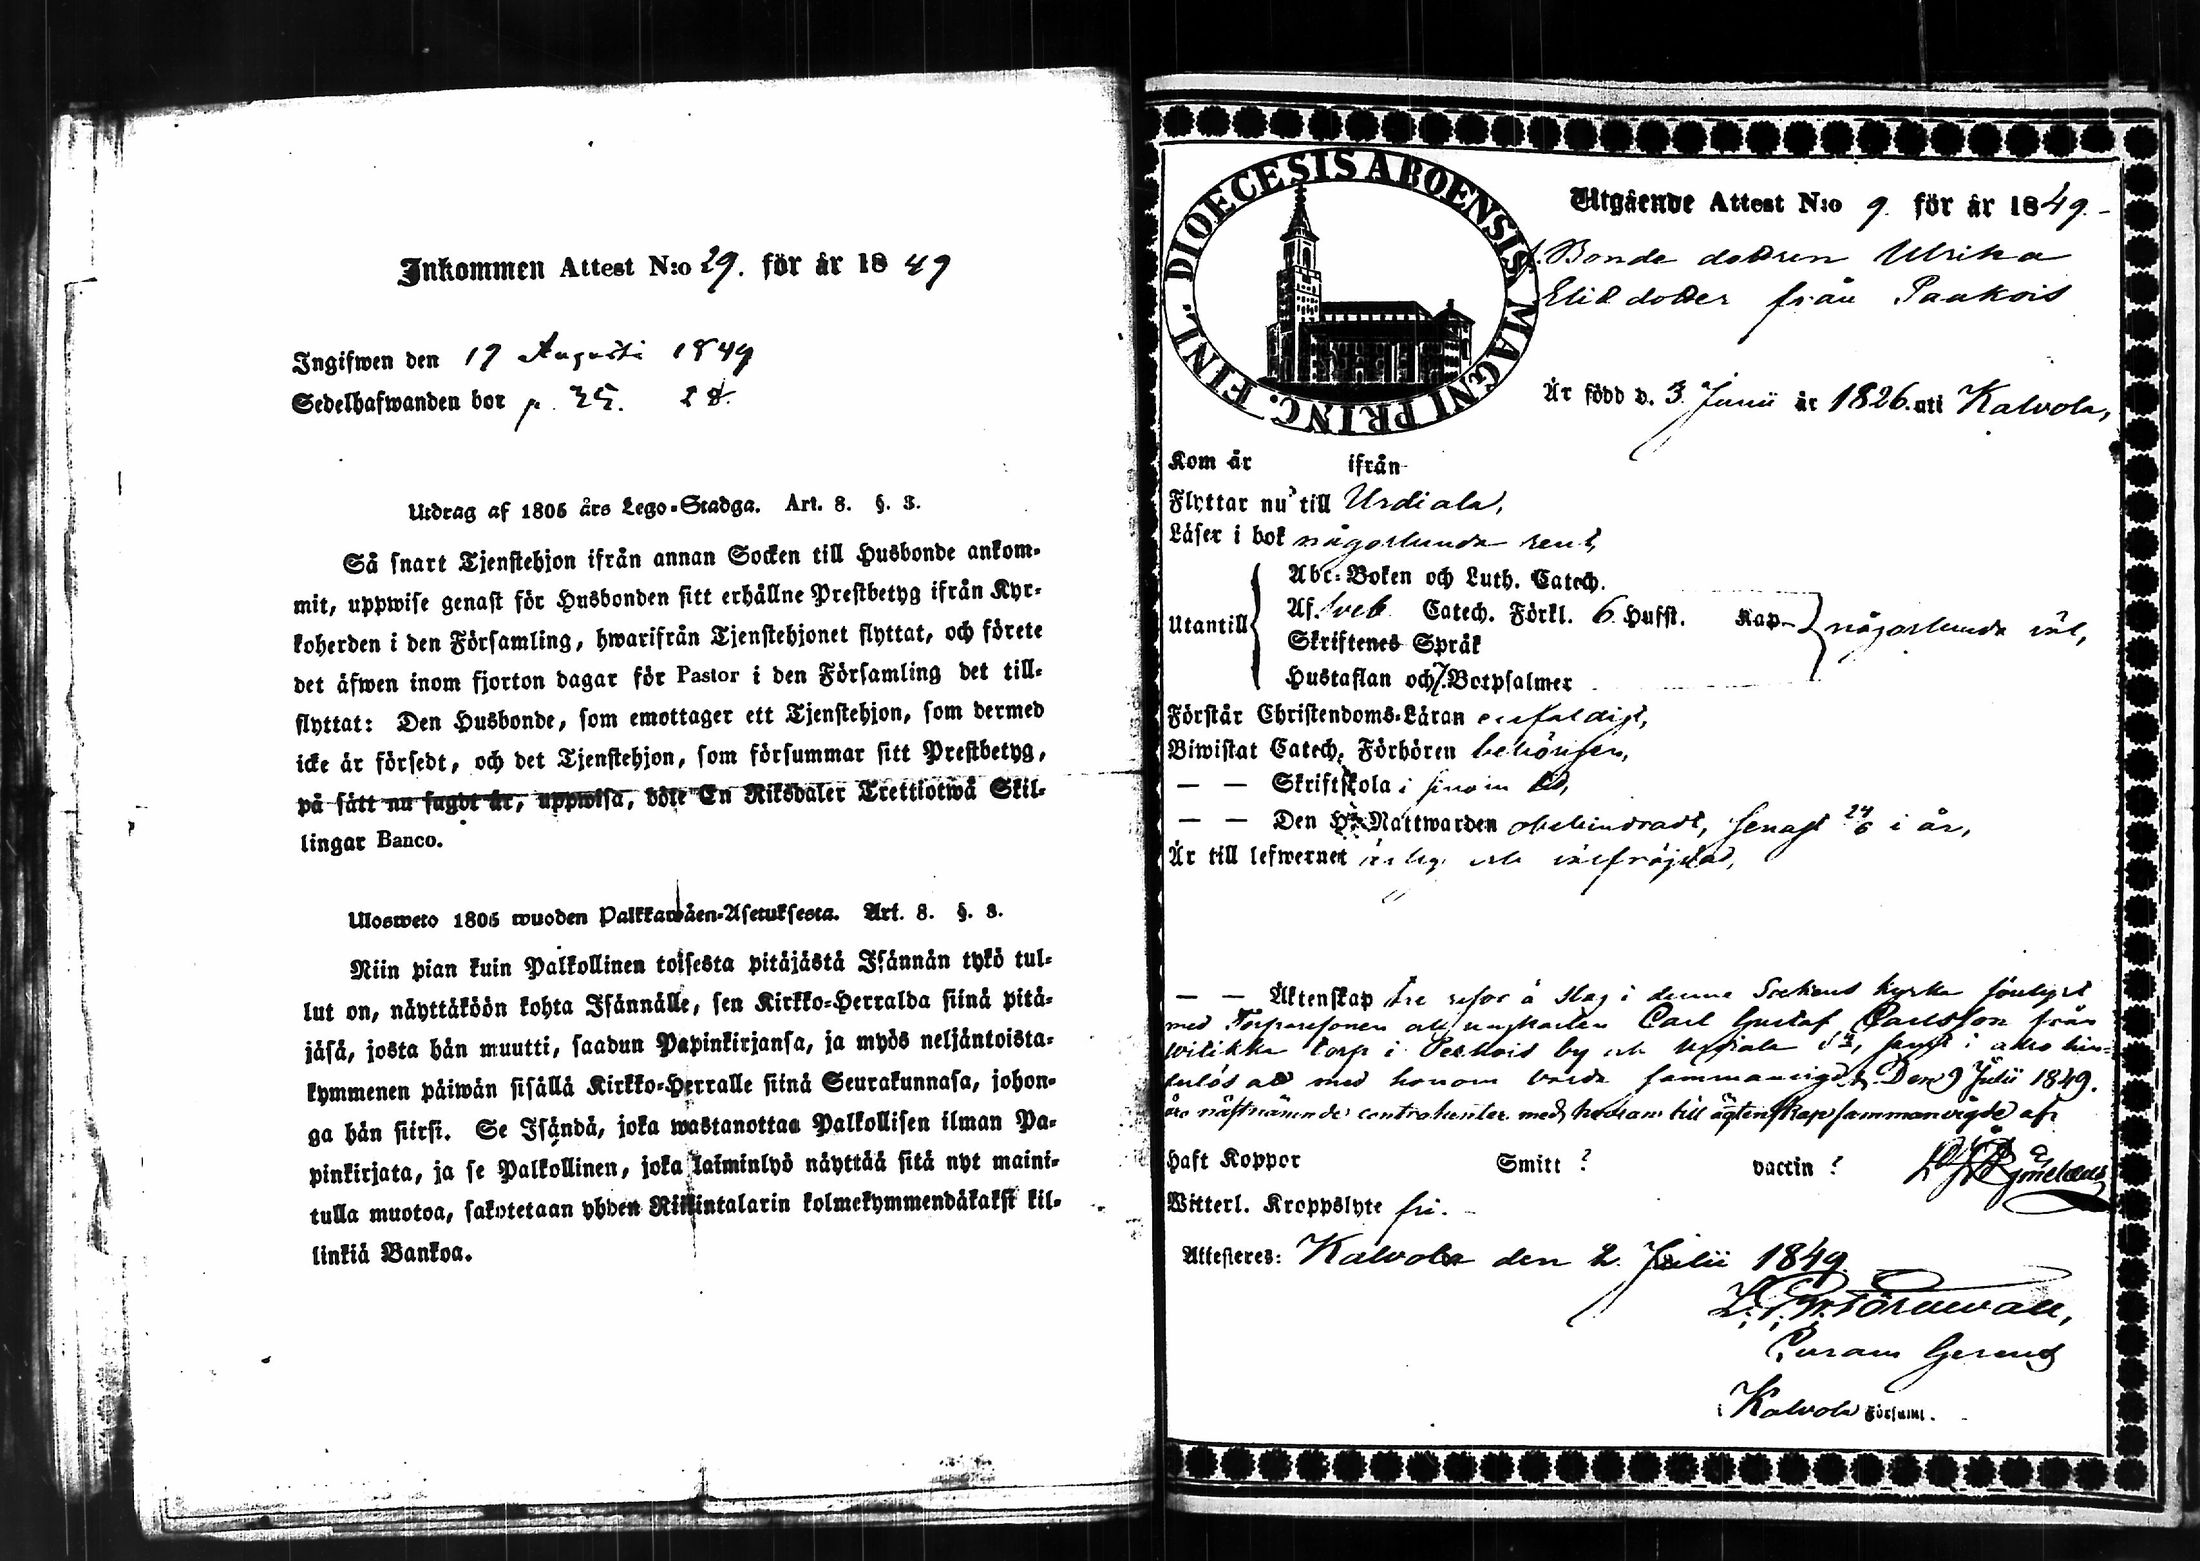 Inkommen Attest N:o 29. för år 1849
Ingifwen den 19 Augusti 1849
Sedelhafwanden bor p. 25. 28.
Utdrag af 1805 års Lego-Stadga. Art. 8. §. 3.
Så snart Tjenstehjon ifrån annan Socken till Husbonde ankom-
mit, uppwise genast för Husbonden sitt erhållne Prestbetyg ifrån Kyr-
koherden i den Församling, hwarifrån Tjenstehjonet flyttat, och förete
det äfwen inom fjorton dagar för Pastor i den Församling det till-
flyttat: Den Husbonde, som emottager ett Tjenstehjon, som dermed
icke är försedt, och det Tjenstehjon, som försummar sitt Prestbetyg,
på sätt nu sagdt är, uppwisa, böte En Riksdaler Trettiotwå Skil-
lingar Banco.
Ulosweto 1805 wuoden Palkkawäen-Asetuksesta. Art. 8. §. 3.
Niin pian kuin Palkollinen toisesta pitäjästä Isännän tykö tul-
lut on, näyttäköön kohta Isännälle, sen Kirkko-Herralda siinä pitä-
jäsä, josta hän muutti, saadun Papinkirjansa, ja myös neljäntoista-
kymmenen päiwän sisällä Kirkko-Herralle siinä Seurakunnasa, johon-
ga hän siirsi. Se Isändä, joka wastanottaa Palkollisen ilman Pa-
pinkirjata, ja se Palkollinen, joka laiminlyö näyttää sitä nyt maini-
tulla muotoa, sakotetaan yhden Riikintalarin kolmekymmendäkaksi kil-
linkiä Bankoa.
FINL. DIOECESIS ABOENSIS MAGNI PRINC.
Utgående Attest N:o 9. för år 1849.
Bonde dottren Ulrika
dotter från Paakois
Är född d. 3 Junii år 1826. uti Kalvola,
Kom år ifrån
Flyttar nu till Urdiala,
Läser i bok någorlunda rent,
Utantill
Abc-Boken och Luth. Catech.
Af. Sveb. Catech. Förkl. 6. Hufst. Kap.
Skriftenes Språk
Hustaflan och 7. Botpsalmer
någorlunda väl,
Förstår Christendoms-Läran enfaldigt,
Biwistat Catech. Förhören behörigen,
— — Skriftskola i sinom tid,
— — Den H. Nattwarden obehindradt, senast 24/6 i år,
Är till lefwernet ärlig och välfräjdad,
— — Äktenskap tre resor å slag i denna Sockens kyrka förelyst
med Torparesonen och ungkarlen Carl Gustaf Carlsson från
torp i by och
med honom varda Den 9 Julii 1849.
äro näfstnämnde contrahenter med hvaran till ägtenskap sammanvigde af
Haft Koppor Smitt? vaccin?
Witterl. Kroppslyte fri.
Attesteres: Kalvola den 2. Julii 1849
Törnwall,
Curam Gerens
i Kalvola Församl.